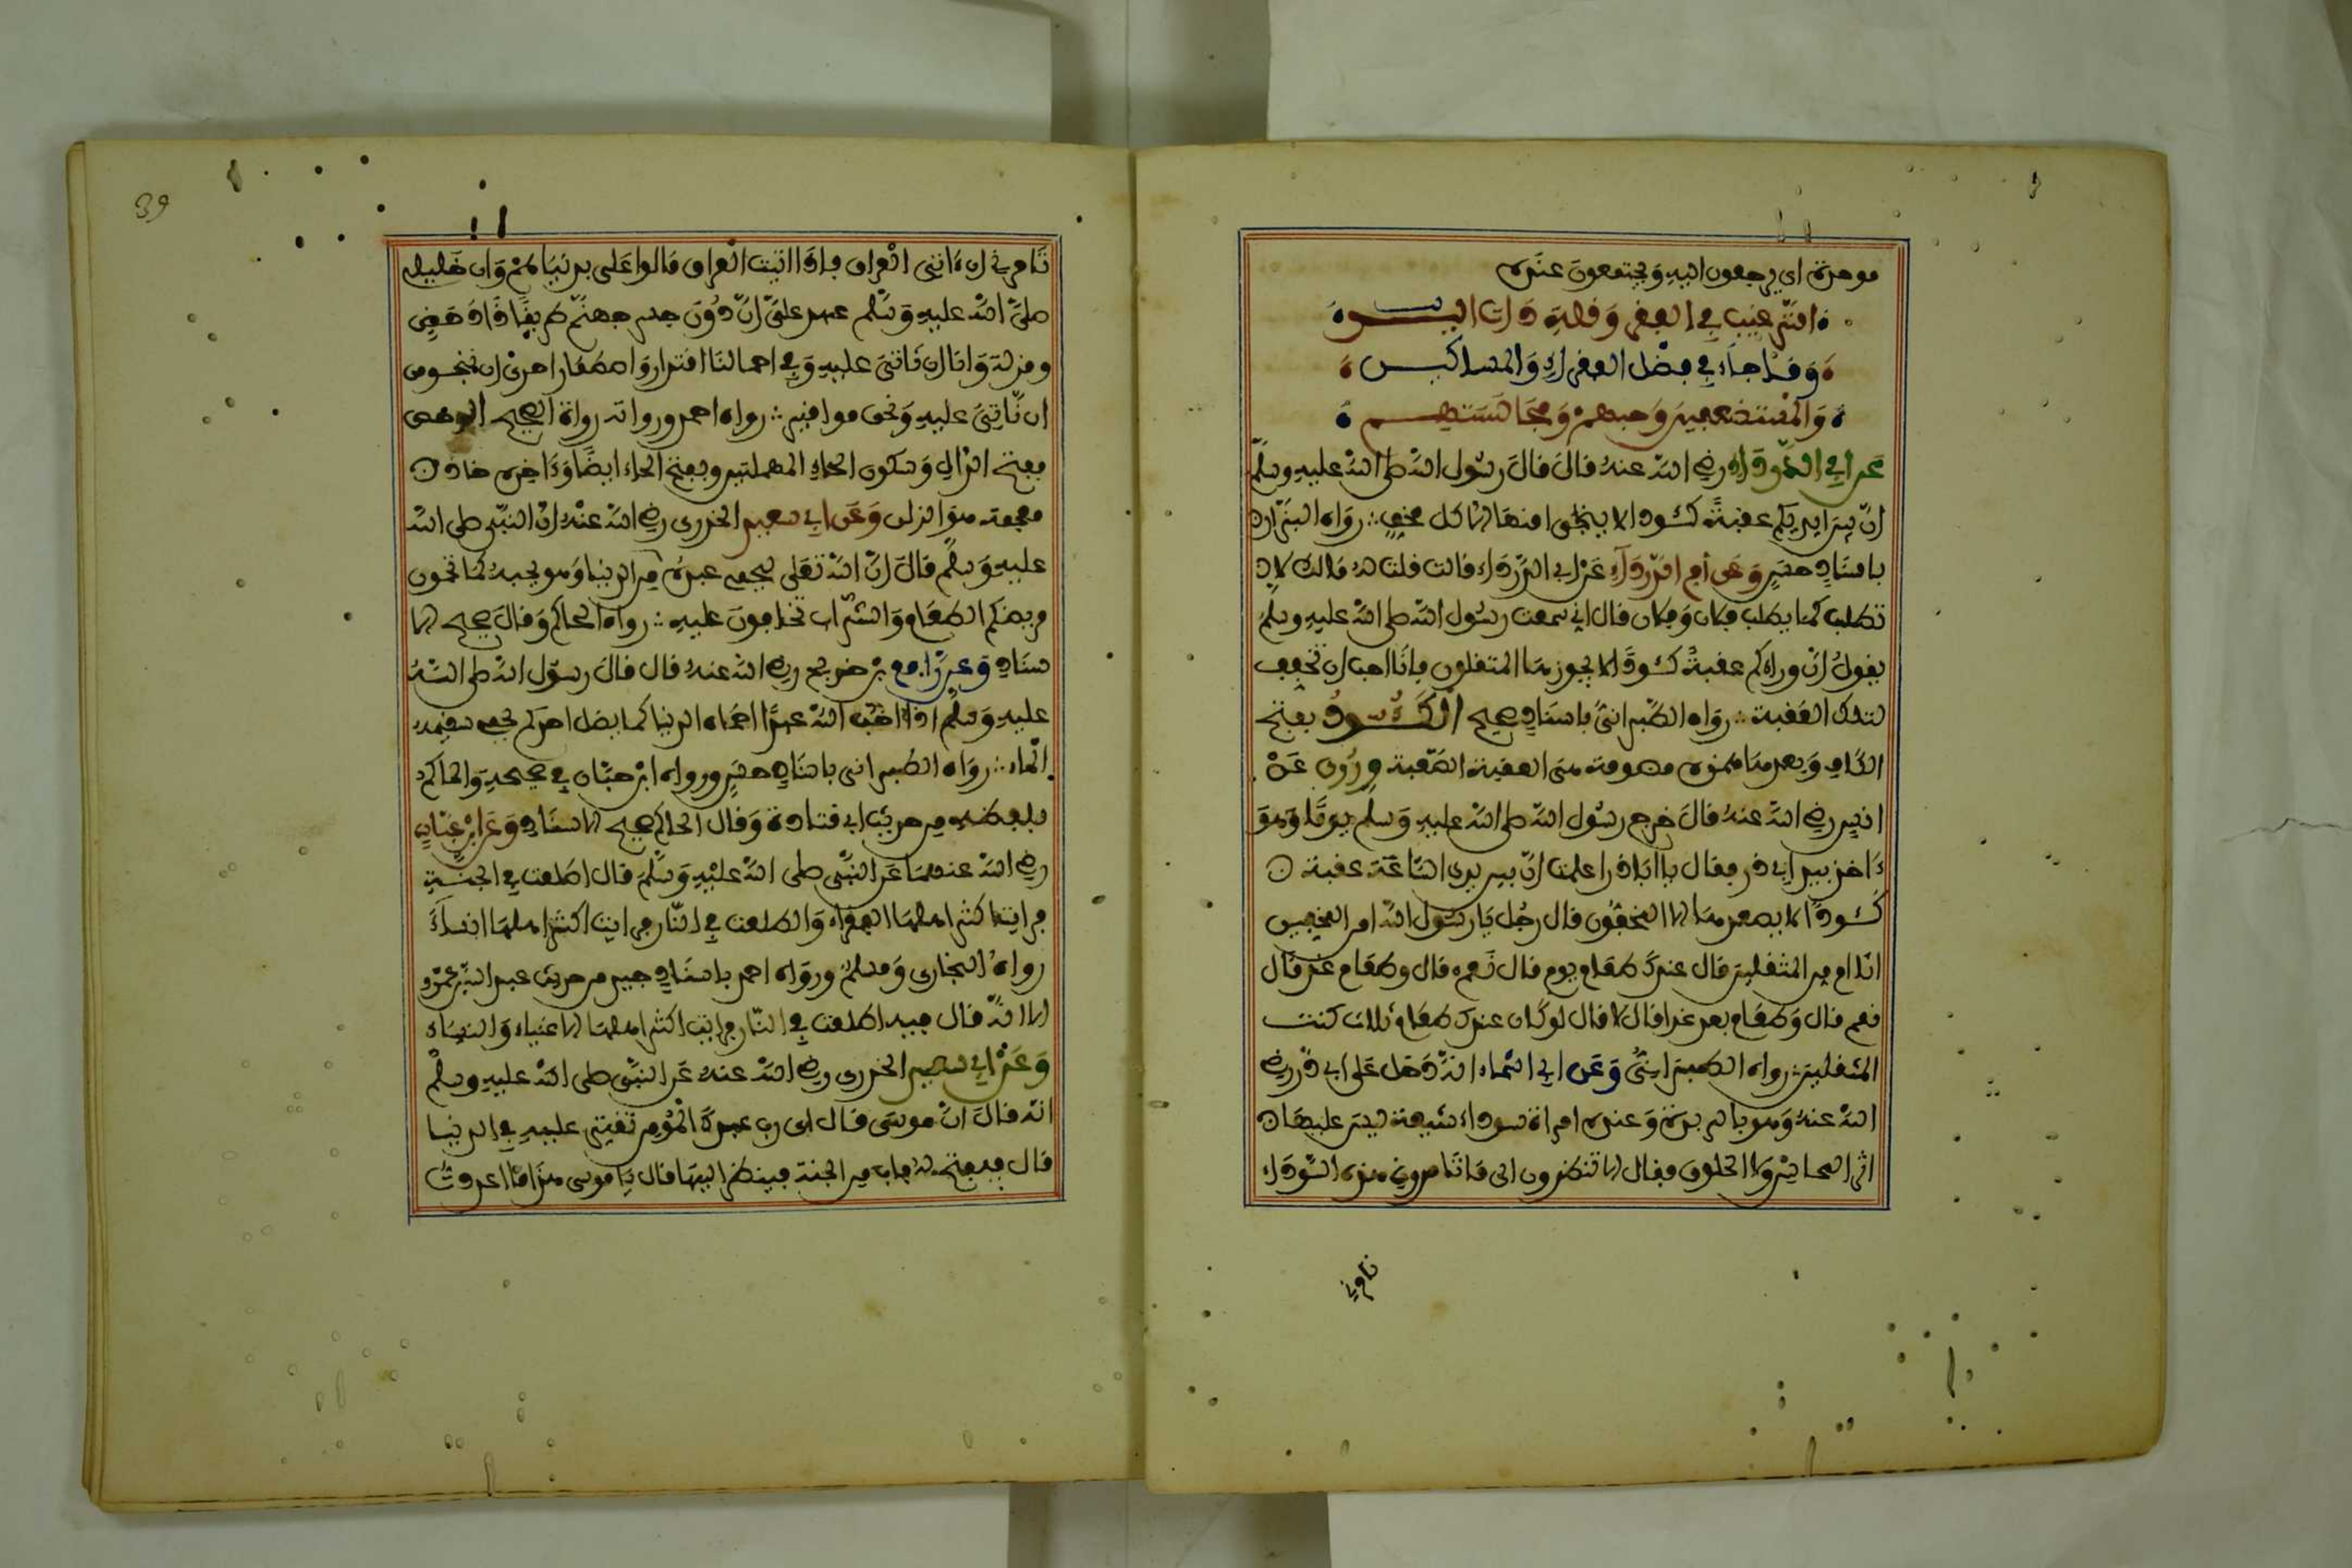 موحدة اي يرجعون اليه ويجتمعون عنده
الترغيب في الفقر وقلة ذات اليد
وما جاء في فضل الفقراء والمساكين
والمستضعفين وحبهم ومجالستهم
عن ابي الدرداء رضي الله عنه قال قال رسول الله صلى الله عليه وسلم
ان بين ايديكم عقبة كئودا لا ينجوا منها الا كل مخف رواه البزار
باسناد حسن وعن ام الدرداء عن ابي الدرداء قالت قلت له مالك لا
تطلب كما يطلب فلان وفلان قال اني سمعت رسول الله صلى الله عليه وسلم
يقول ان وراءكم عقبة كئودا لا يجوزها المثقلون فانا احب ان نخفف
لتلك العقبة رواه الطبراني باسناد صحيح الكئود بفتح
الكاف وبعدها همزة مضمومة هي العقبة الصعبة وروي عن
انس رضي الله عنه قال خرج رسول الله صلى الله عليه وسلم يوما وهو
ءاخذ بيد ابي ذر فقال يا ابا ذر اعلمت ان بين يدي الساعة عقبة
كئودا لا يصعدها الا المخفون قال رجل يا رسول الله امن المخفين
انا ام من المثقلين قال عندك طعام يوم قال نعم قال وطعام غد قال
نعم قال وطعام بعد غد قال لا قال لو كان عندك طعام ثلاث كنت
من المثقلين رواه الطبراني وعن ابي اسماء انه دخل على ابي ذر رضي
الله عنه وهو بالربذة وعنده امراة سوداء شبعة ليس عليها
اثر المحاسن ولا الخلوق فقال الا تنظرون الى ما تامروني هذه السوداء
تامرني
تامرني ان ءاتي العراق فاذا اتيت العراق مالوا علي بدنياهم وان خليلي
صلى الله عليه وسلم عهد علي ان دون جسر جهنم طريقا ذا دحض
ومزلة وانا ان ناتي عليه وفي احمالنا اقتدار واضطمار احرى ان ننجو من
ان ناتي عليه ونحن مواقير رواه احمد ورواته رواة الصحيح الدحض
بفتح الدال وسكون الحاء المهملتين وبفتح الحاء ايضا وءاخره ضاد
معجمة هو الزلق وعن ابي سعيد الخدري رضي الله عنه ان النبي صلى الله
عليه وسلم قال ان الله تعلى ليحمي عبده من الدنيا وهو يحبه كما تحمون
مريضكم الطعام والشراب تخافون عليه رواه الحاكم وقال صحيح الا
سناد وعن رافع بن خديج رضي الله عنه قال قال رسول الله صلى الله
عليه وسلم اذا احب الله عبدا احماه الدنيا كما يضل احدكم يحمي سقيمه
الماء رواه الطبراني باسناد حسن ورواه ابن حبان في صحيحه والحاكم
بلفظه من حديث ابي قتادة وقال الحاكم صحيح الاسناد وعن ابن عباس
رضي الله عنهما عن النبي صلى الله عليه وسلم قال اطلعت في الجنة
فرايت اكثر اهلها الفقراء واطلعت في النار فرايت اكثر اهلها النساء
رواه البخاري ومسلم ورواه احمد باسناد جيد من حديث عبد الله بن عمرو
الا انه قال فيه اطلعت في النار فرايت اكثر اهلها الاغنياء والنساء
وعن ابي سعيد الخدري رضي الله عنه عن النبي صلى الله عليه وسلم
انه قال ان موسى قال اي رب عبدك المومن تقتر عليه في الدنيا
قال فيفتح له باب من الجنة فينظر اليها قال يا موسى هذا ما اعددت
39